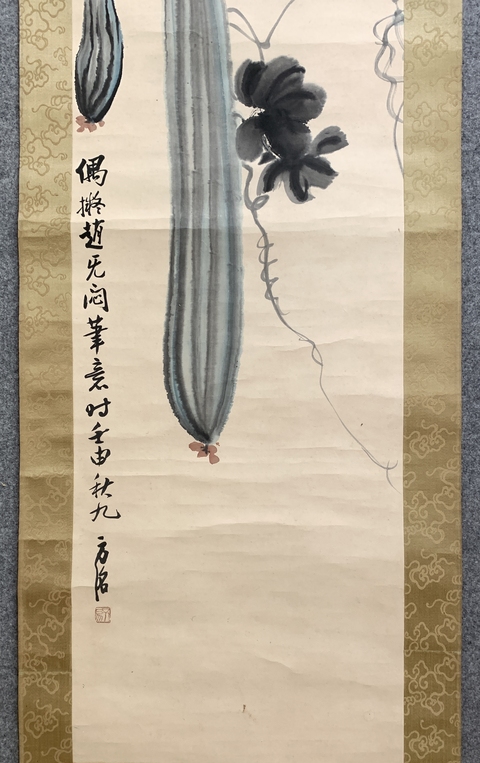 偶擬趙无悶筆意时壬申秋九
方洺